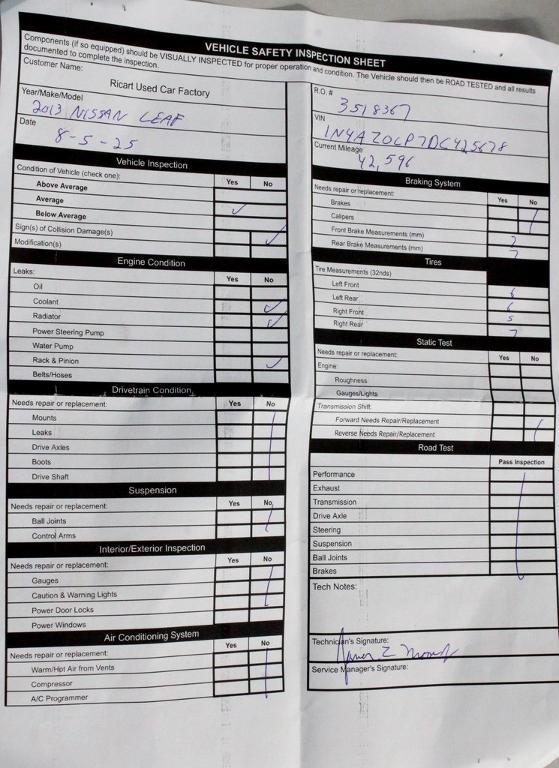 VEHICLE SAFETY INSPECTION SHEET
Components (if so equipped) should be VISUALLY INSPECTED for proper operation and condition. The Vehicle should then be ROAD TESTED and all results
documented to complete the inspection.
Customer Name:
Ricart Used Car Factory
Year/Make/Model
2013 NISSAN LEAF
Date
8-5-25
R.O. #
3518367
VIN
1N4AZ0CP7DC425678
Current Mileage
42,596
Vehicle Inspection
Condition of Vehicle (check one): Yes No
Above Average
Average
Below Average
Sign(s) of Collision Damage(s)
Modification(s)
Engine Condition
Leaks: Yes No
Oil
Coolant
Radiator
Power Steering Pump
Water Pump
Rack & Pinion
Belts/Hoses
Drivetrain Condition
Needs repair or replacement: Yes No
Mounts
Leaks
Drive Axles
Boots
Drive Shaft
Suspension
Needs repair or replacement: Yes No
Ball Joints
Control Arms
Interior/Exterior Inspection
Needs repair or replacement: Yes No
Gauges
Caution & Warning Lights
Power Door Locks
Power Windows
Air Conditioning System
Needs repair or replacement: Yes No
Warm/Hot Air from Vents
Compressor
A/C Programmer
Braking System
Needs repair or replacement: Yes No
Brakes
Calipers
Front Brake Measurements (mm) 7
Rear Brake Measurements (mm) 7
Tires
Tire Measurements (32nds)
Left Front 6
Left Rear 6
Right Front 5
Right Rear 7
Static Test
Needs repair or replacement: Yes No
Engine:
Roughness
Gauges/Lights
Transmission Shift:
Forward Needs Repair/Replacement
Reverse Needs Repair/Replacement
Road Test
Pass Inspection
Performance
Exhaust
Transmission
Drive Axle
Steering
Suspension
Ball Joints
Brakes
Tech Notes:
Technician's Signature:
Service Manager's Signature: